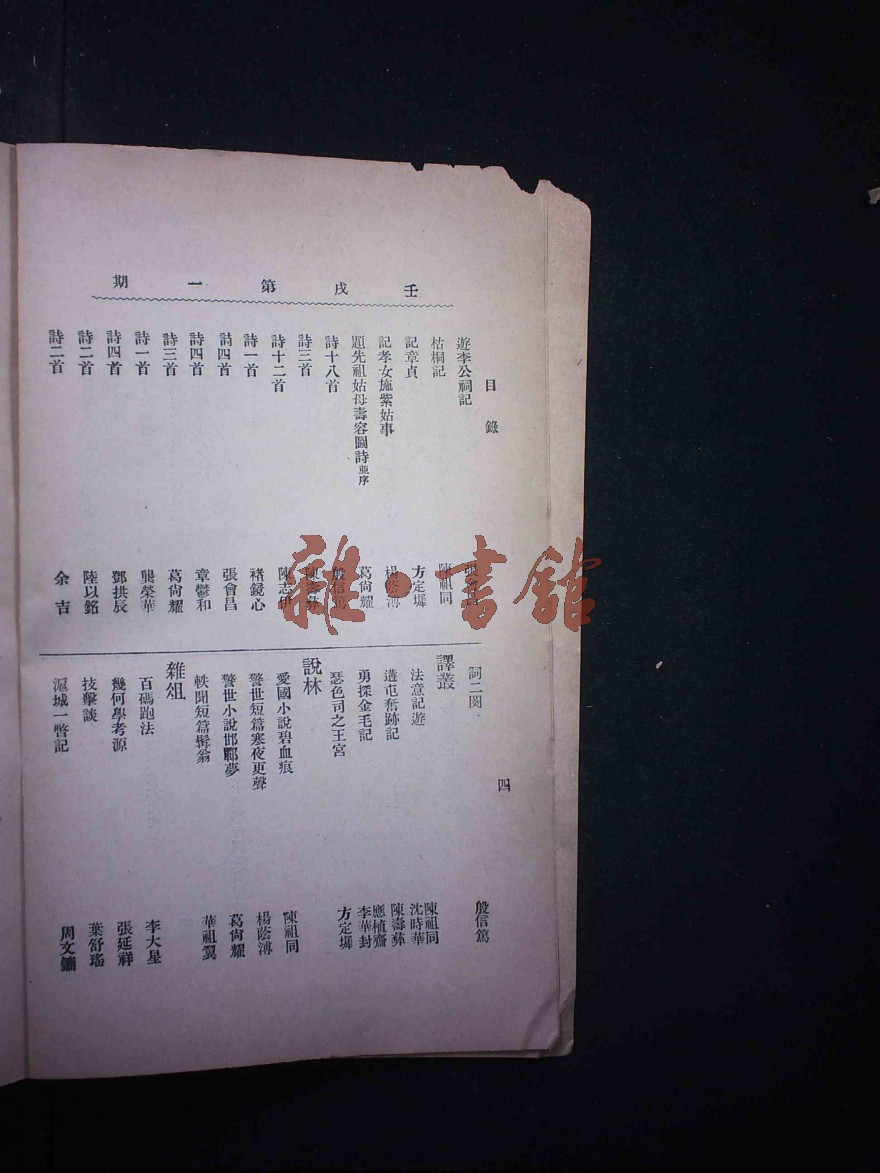 壬戌第一期
目錄
四
遊李公祠記
枯桐記 陳祖同
記章貞 方定墀
記孝女施紫姑事 楊蔭溥
題先祖姑母壽容圖詩並序 葛尙耀
詩十八首 殷信篤
詩三首 陳壽彝
詩十二首 陳志伊
詩一首 褚鏡心
詩四首 張會昌
詩四首 章鬱和
詩三首 葛尙耀
詩一首 龔榮華
詩四首 鄧拱辰
詩二首 陸以銘
詩二首 余吉
詞二闋 殷信篤
譯叢
法意記遊 陳祖同 沈時華
遘屯奮跡記 陳壽彝
勇探金毛記 應植齋 李華封
瑟色司之王宮 方定墀
說林
愛國小說碧血痕 陳祖同
警世短篇寒夜更聲 楊蔭溥
警世小說邯鄲夢 葛尙耀
軼聞短篇髯翁 華祖翼
雜俎
百碼跑法 李大星
幾何學考源 張延祥
技擊談 葉舒瑤
滬城一瞥記 周文鏞
雜·書館